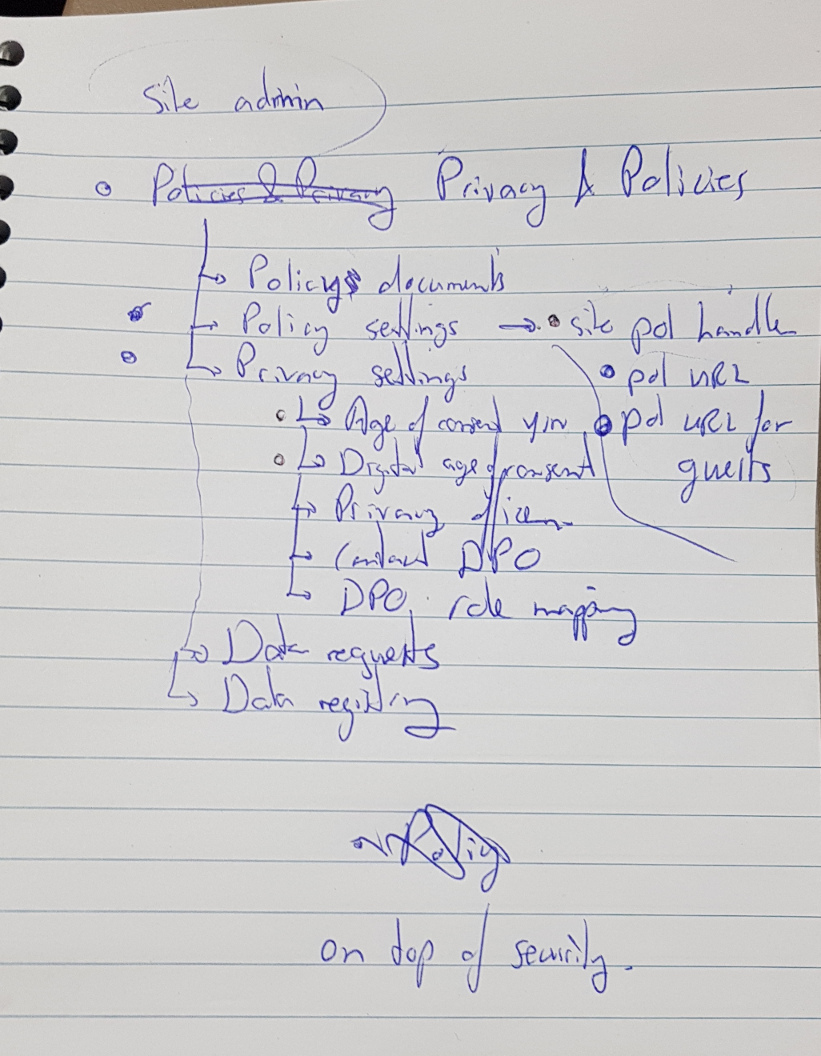 Site admin
Policies & Privacy Privacy & Policies
Policy documents
Policy settings → site pol handler
Privacy settings
pol URL
Age of consent verif
pol URL for
Digital age of consent
guests
Privacy officer
Contact DPO
DPO role mapping
Data requests
Data registry
Policy
on top of security.